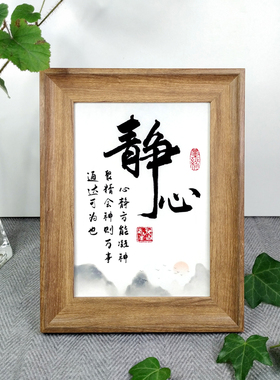 静心
心静方能凝神
聚精会神则万事
通达可为也